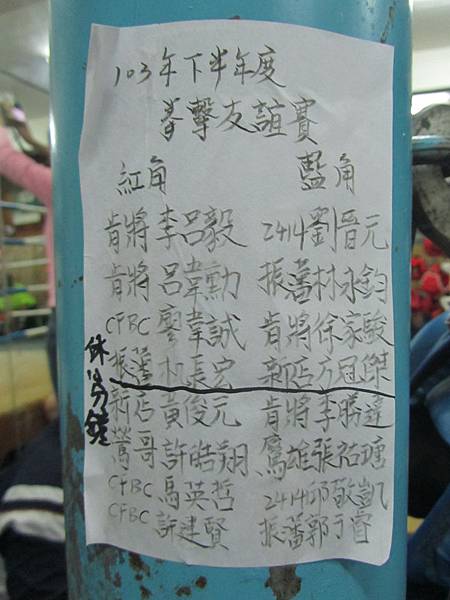 103年下半年度
拳擊友誼賽
紅角 藍角
肯將 李呂毅 2414劉晋元
肯將 呂韋勳 振蕃林永鈞
CFBC 廖韋誠 肯將徐家駿
振蕃 林長宏 新店方冠傑
休10分鐘
新店 黃俊元 肯將李勝達
鶯哥 許皓翔 鷹雄張祐瑭
CFBC 馬英哲 2414邱敬凱
CFBC 許建賢 振蕃郭于睿